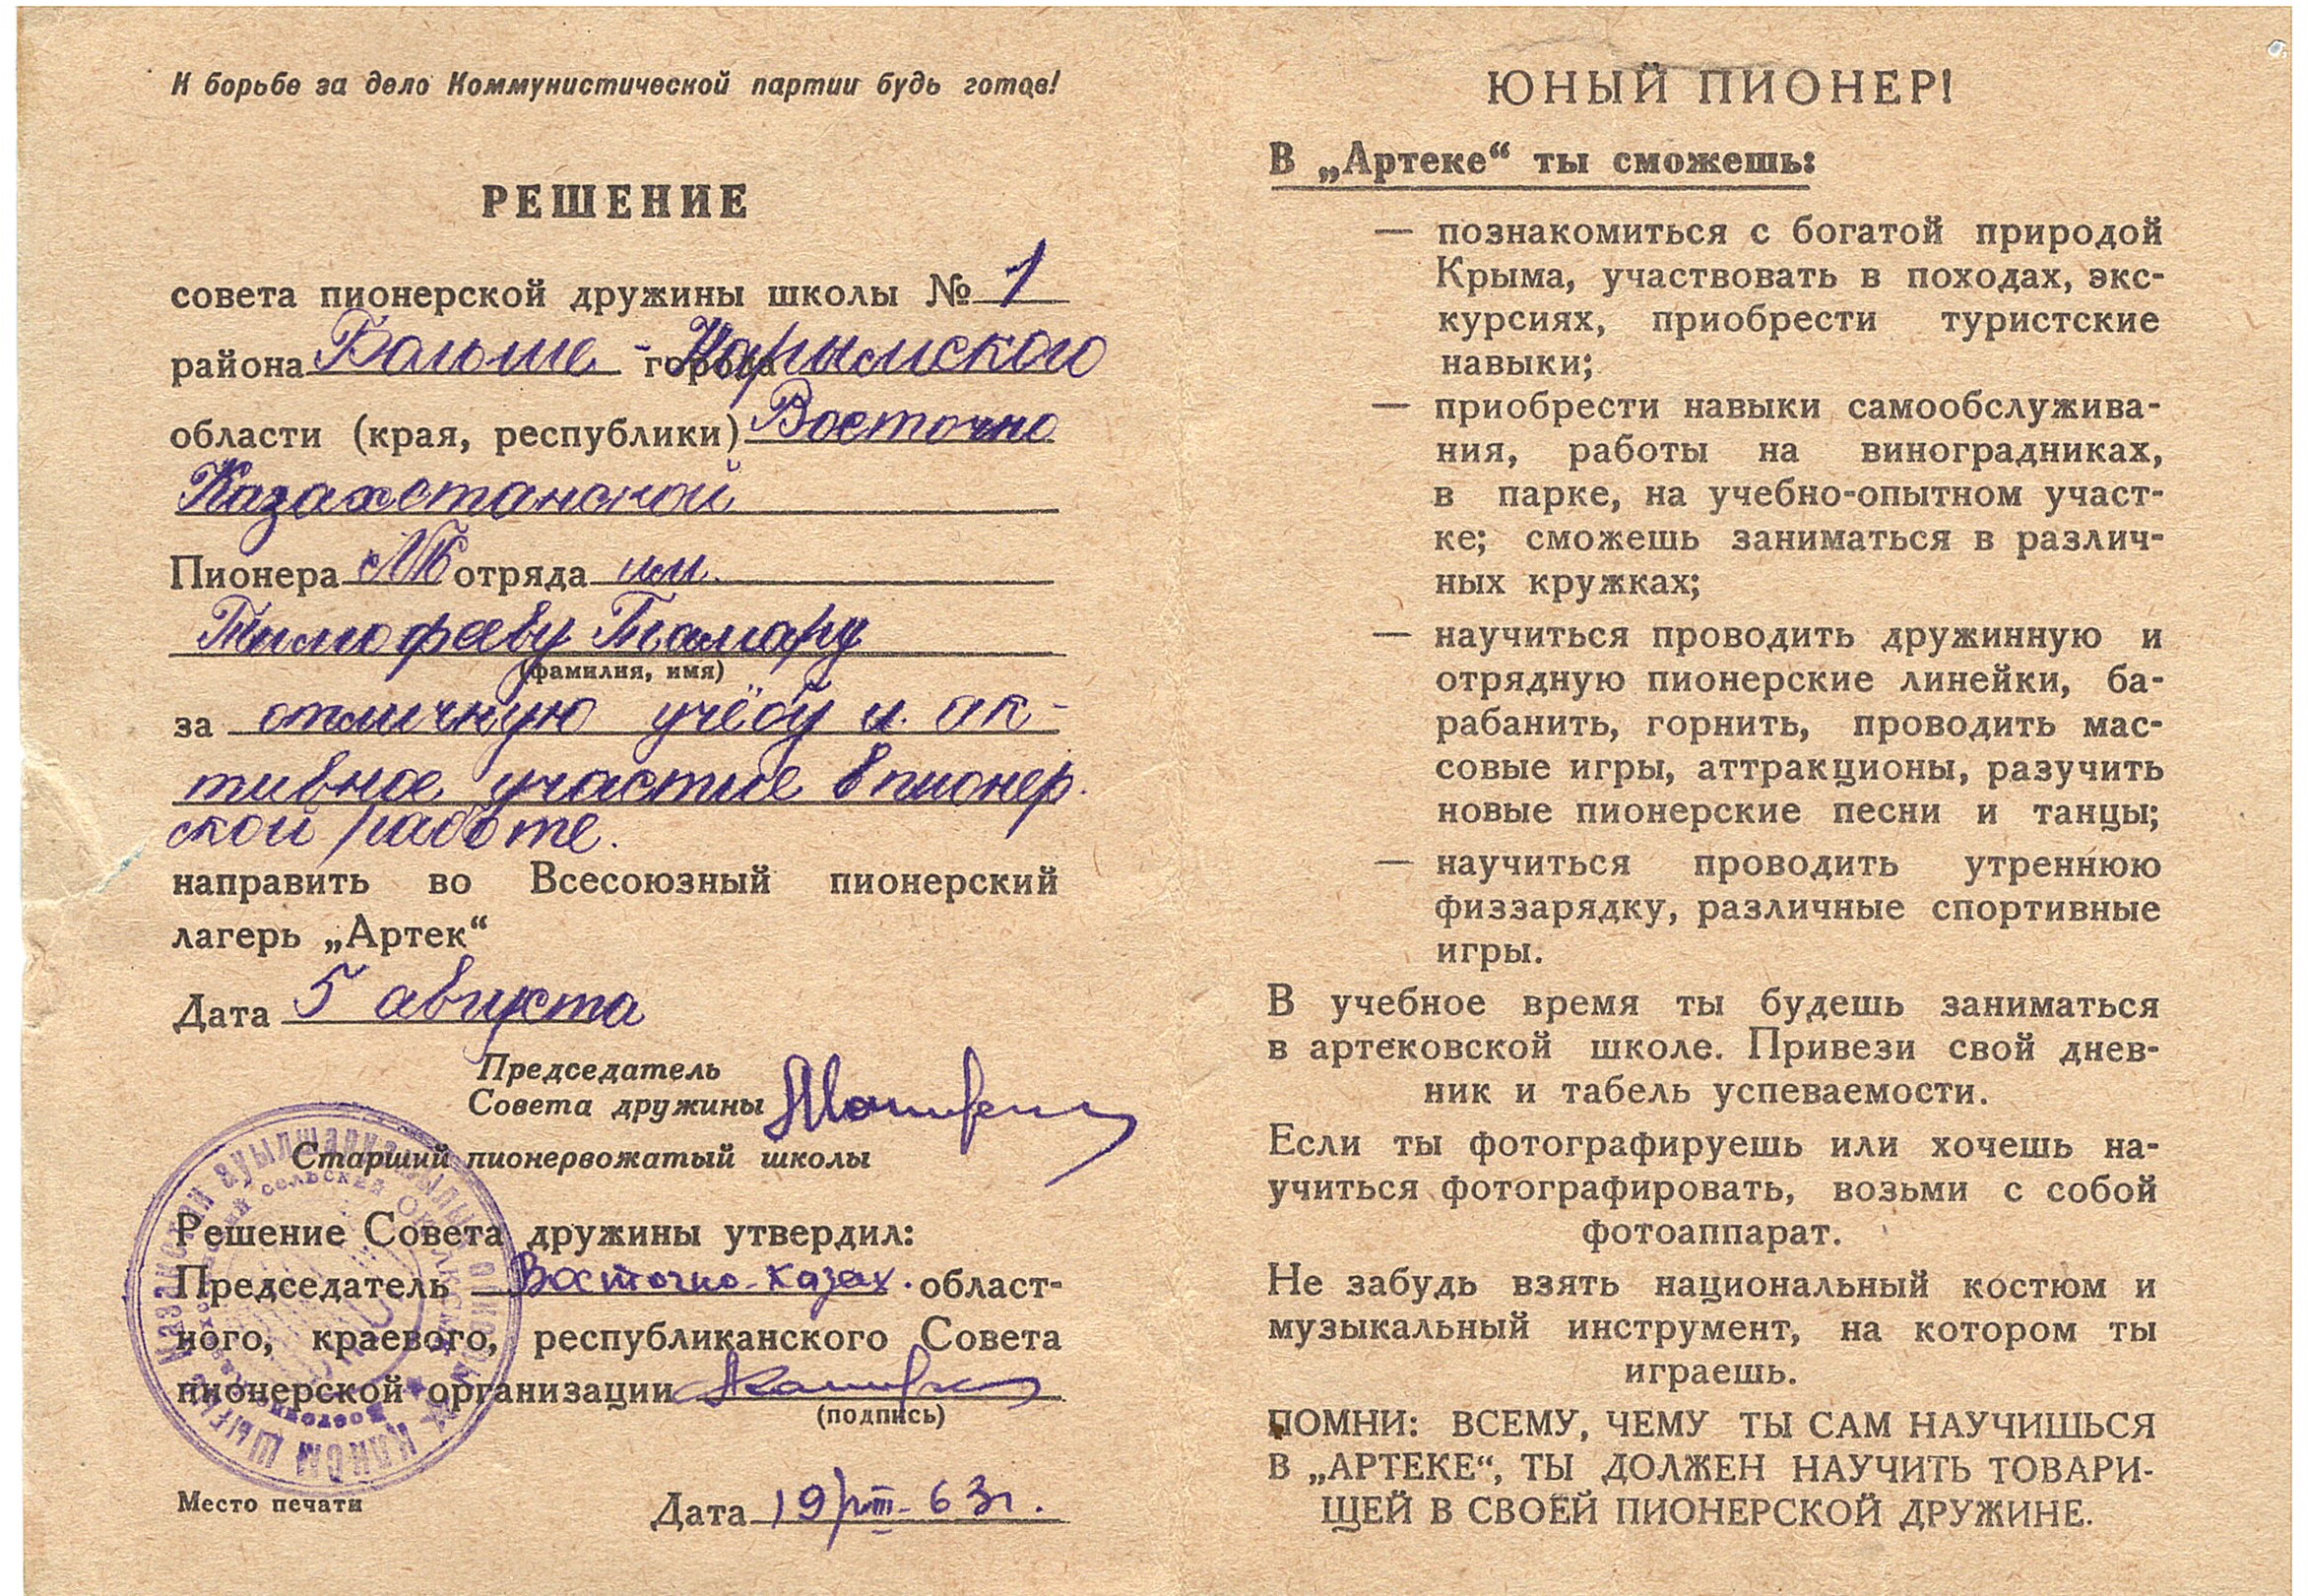 К борьбе за дело Коммунистической партии будь готов!
РЕШЕНИЕ
совета пионерской дружины школы № 1
района Больше - города Нарымского
области (края, республики) Восточно
Казахстанской
Пионера отряда им.
Тимофееву Тамару
(фамилия, имя)
за отличную учёбу и ак-
тивное участие в пионер.
ской работе.
направить во Всесоюзный пионерский
лагерь „Артек“
Дата 5 августа
Председатель
Совета дружины
Старший пионервожатый школы
Решение Совета дружины утвердил:
Председатель Восточно-Казах. област-
ного, краевого, республиканского Совета
пионерской организации
(подпись)
Место печати
Дата 19/VIII-63г.
ЮНЫЙ ПИОНЕР!
В „Артеке“ ты сможешь:
— познакомиться с богатой природой
Крыма, участвовать в походах, экс-
курсиях, приобрести туристские
навыки;
— приобрести навыки самообслужива-
ния, работы на виноградниках,
в парке, на учебно-опытном участ-
ке; сможешь заниматься в различ-
ных кружках;
— научиться проводить дружинную и
отрядную пионерские линейки, ба-
рабанить, горнить, проводить мас-
совые игры, аттракционы, разучить
новые пионерские песни и танцы;
— научиться проводить утреннюю
физзарядку, различные спортивные
игры.
В учебное время ты будешь заниматься
в артековской школе. Привези свой днев-
ник и табель успеваемости.
Если ты фотографируешь или хочешь на-
учиться фотографировать, возьми с собой
фотоаппарат.
Не забудь взять национальный костюм и
музыкальный инструмент, на котором ты
играешь.
ПОМНИ: ВСЕМУ, ЧЕМУ ТЫ САМ НАУЧИШЬСЯ
В „АРТЕКЕ“, ТЫ ДОЛЖЕН НАУЧИТЬ ТОВАРИ-
ЩЕЙ В СВОЕЙ ПИОНЕРСКОЙ ДРУЖИНЕ.